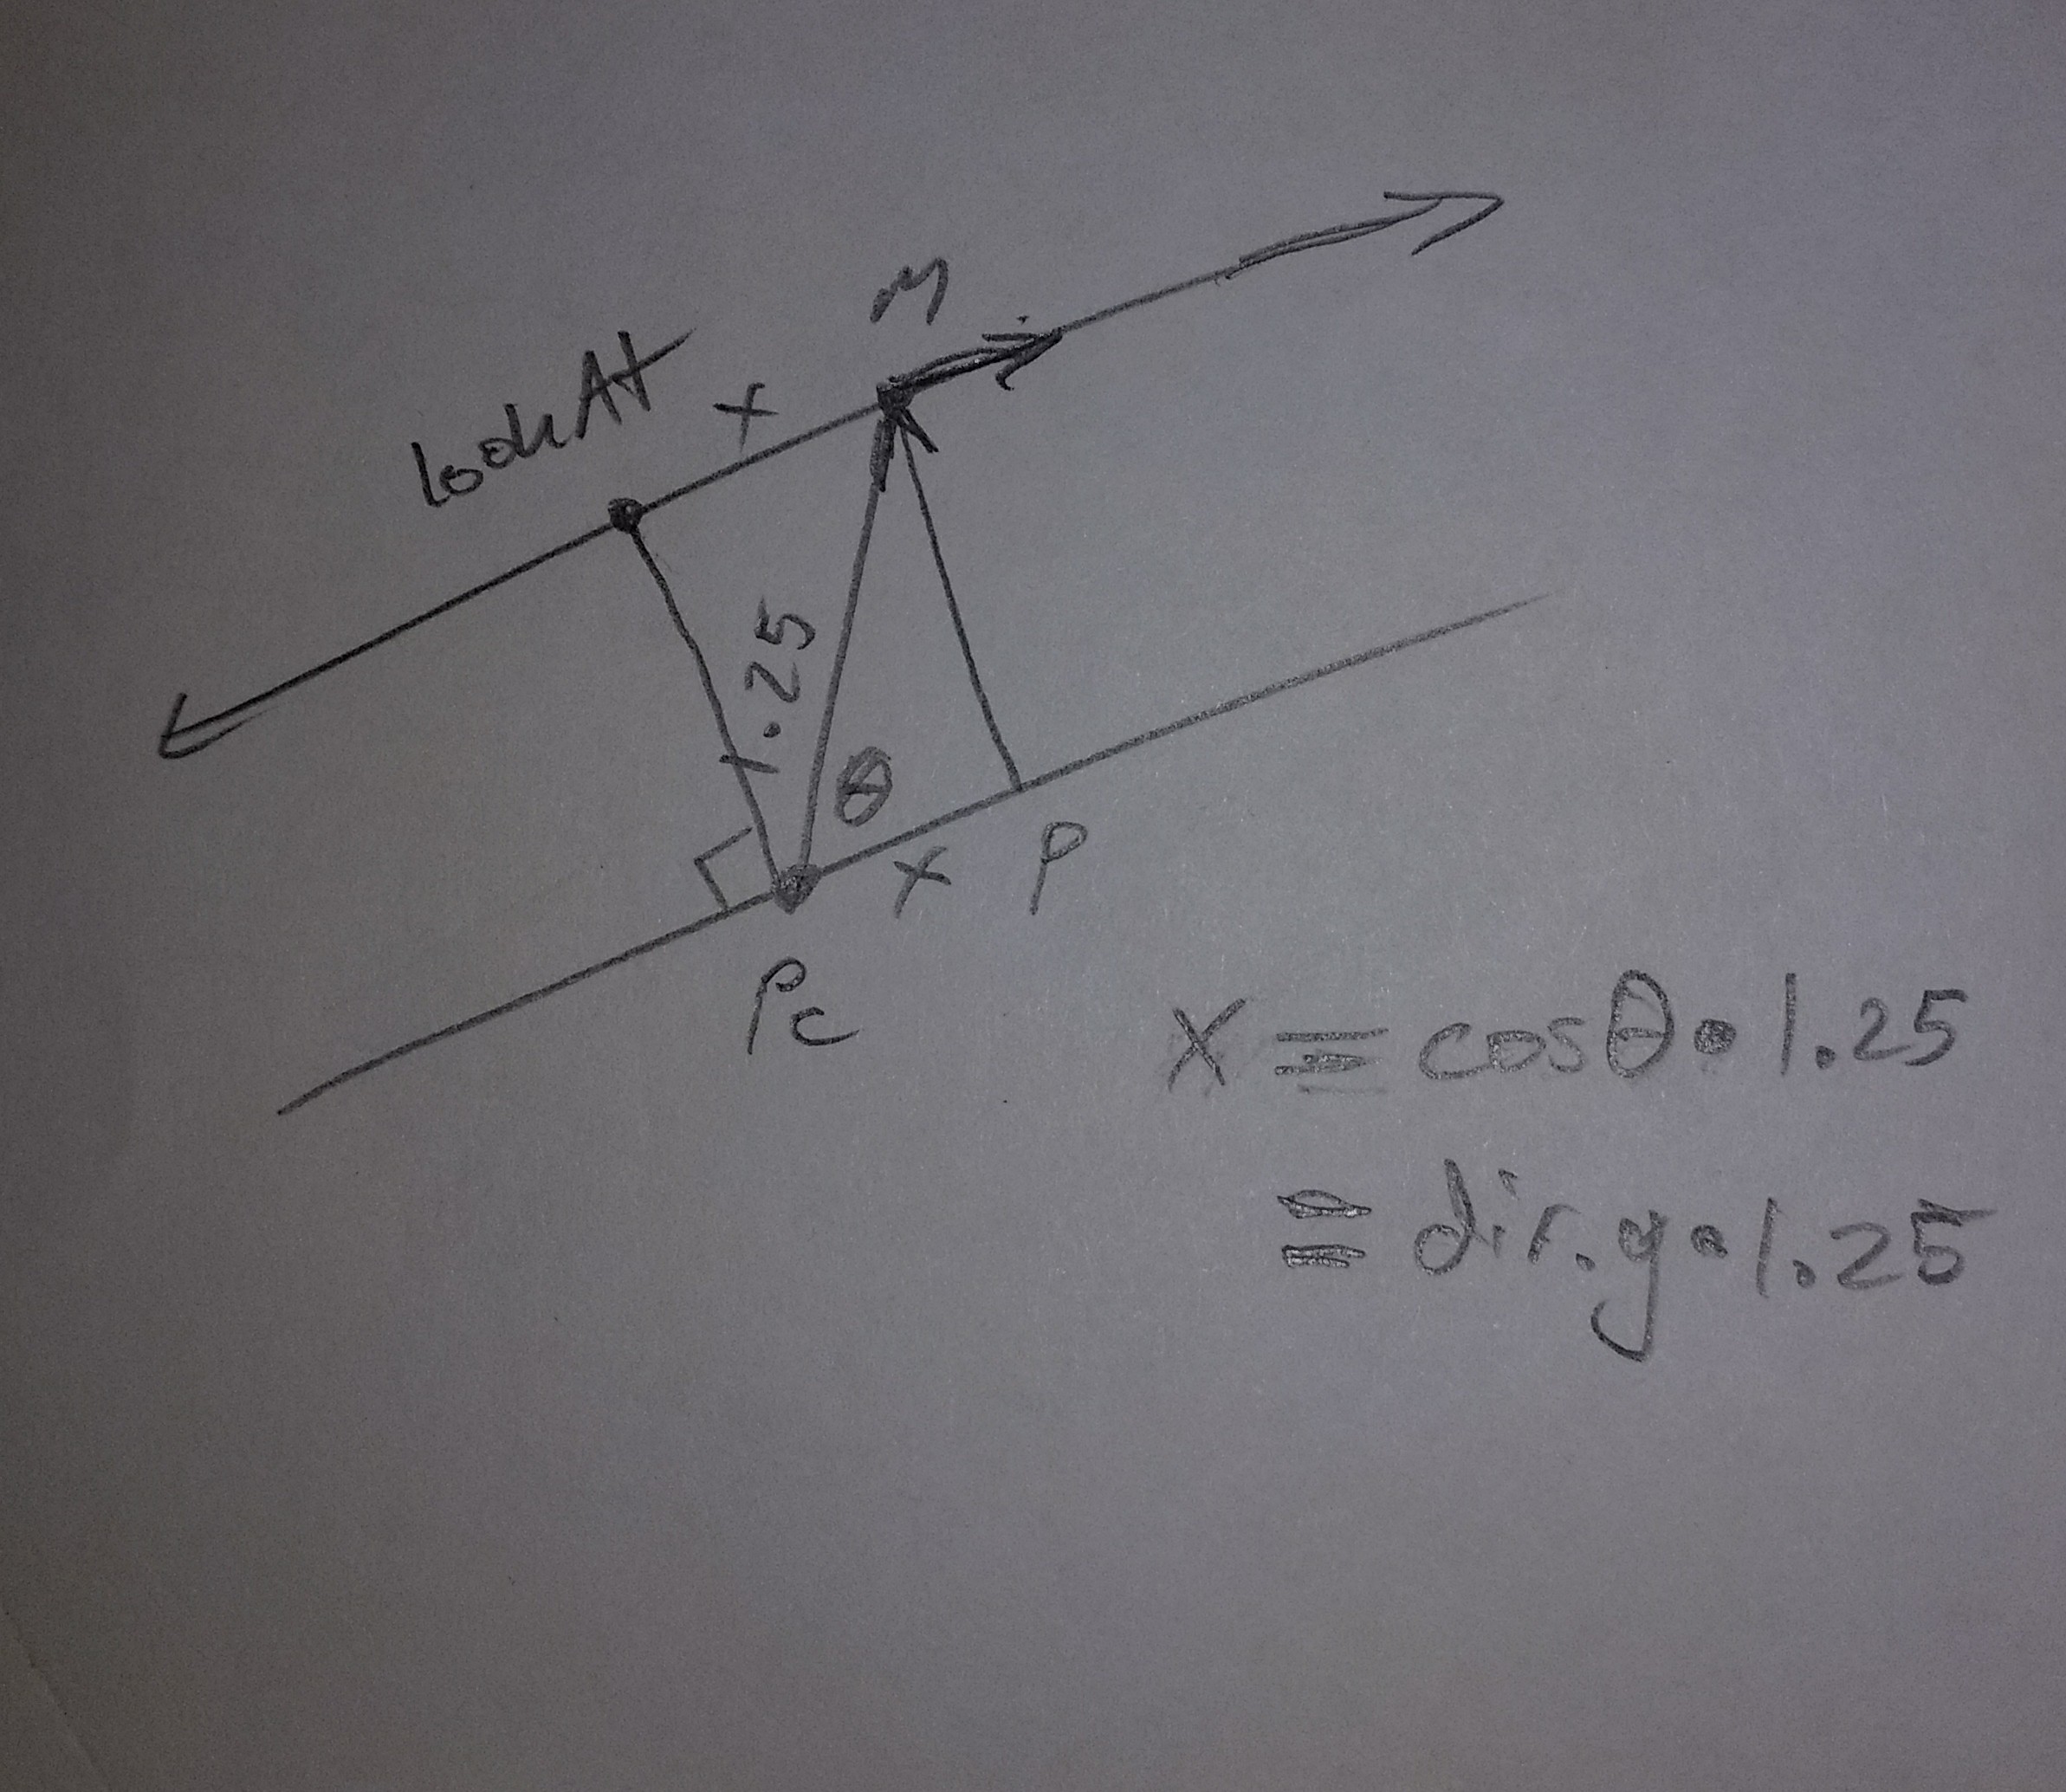 M
LookAt
x
1.25
θ
x
P
Pc
x = cosθ • 1.25
= dir.y • 1.25